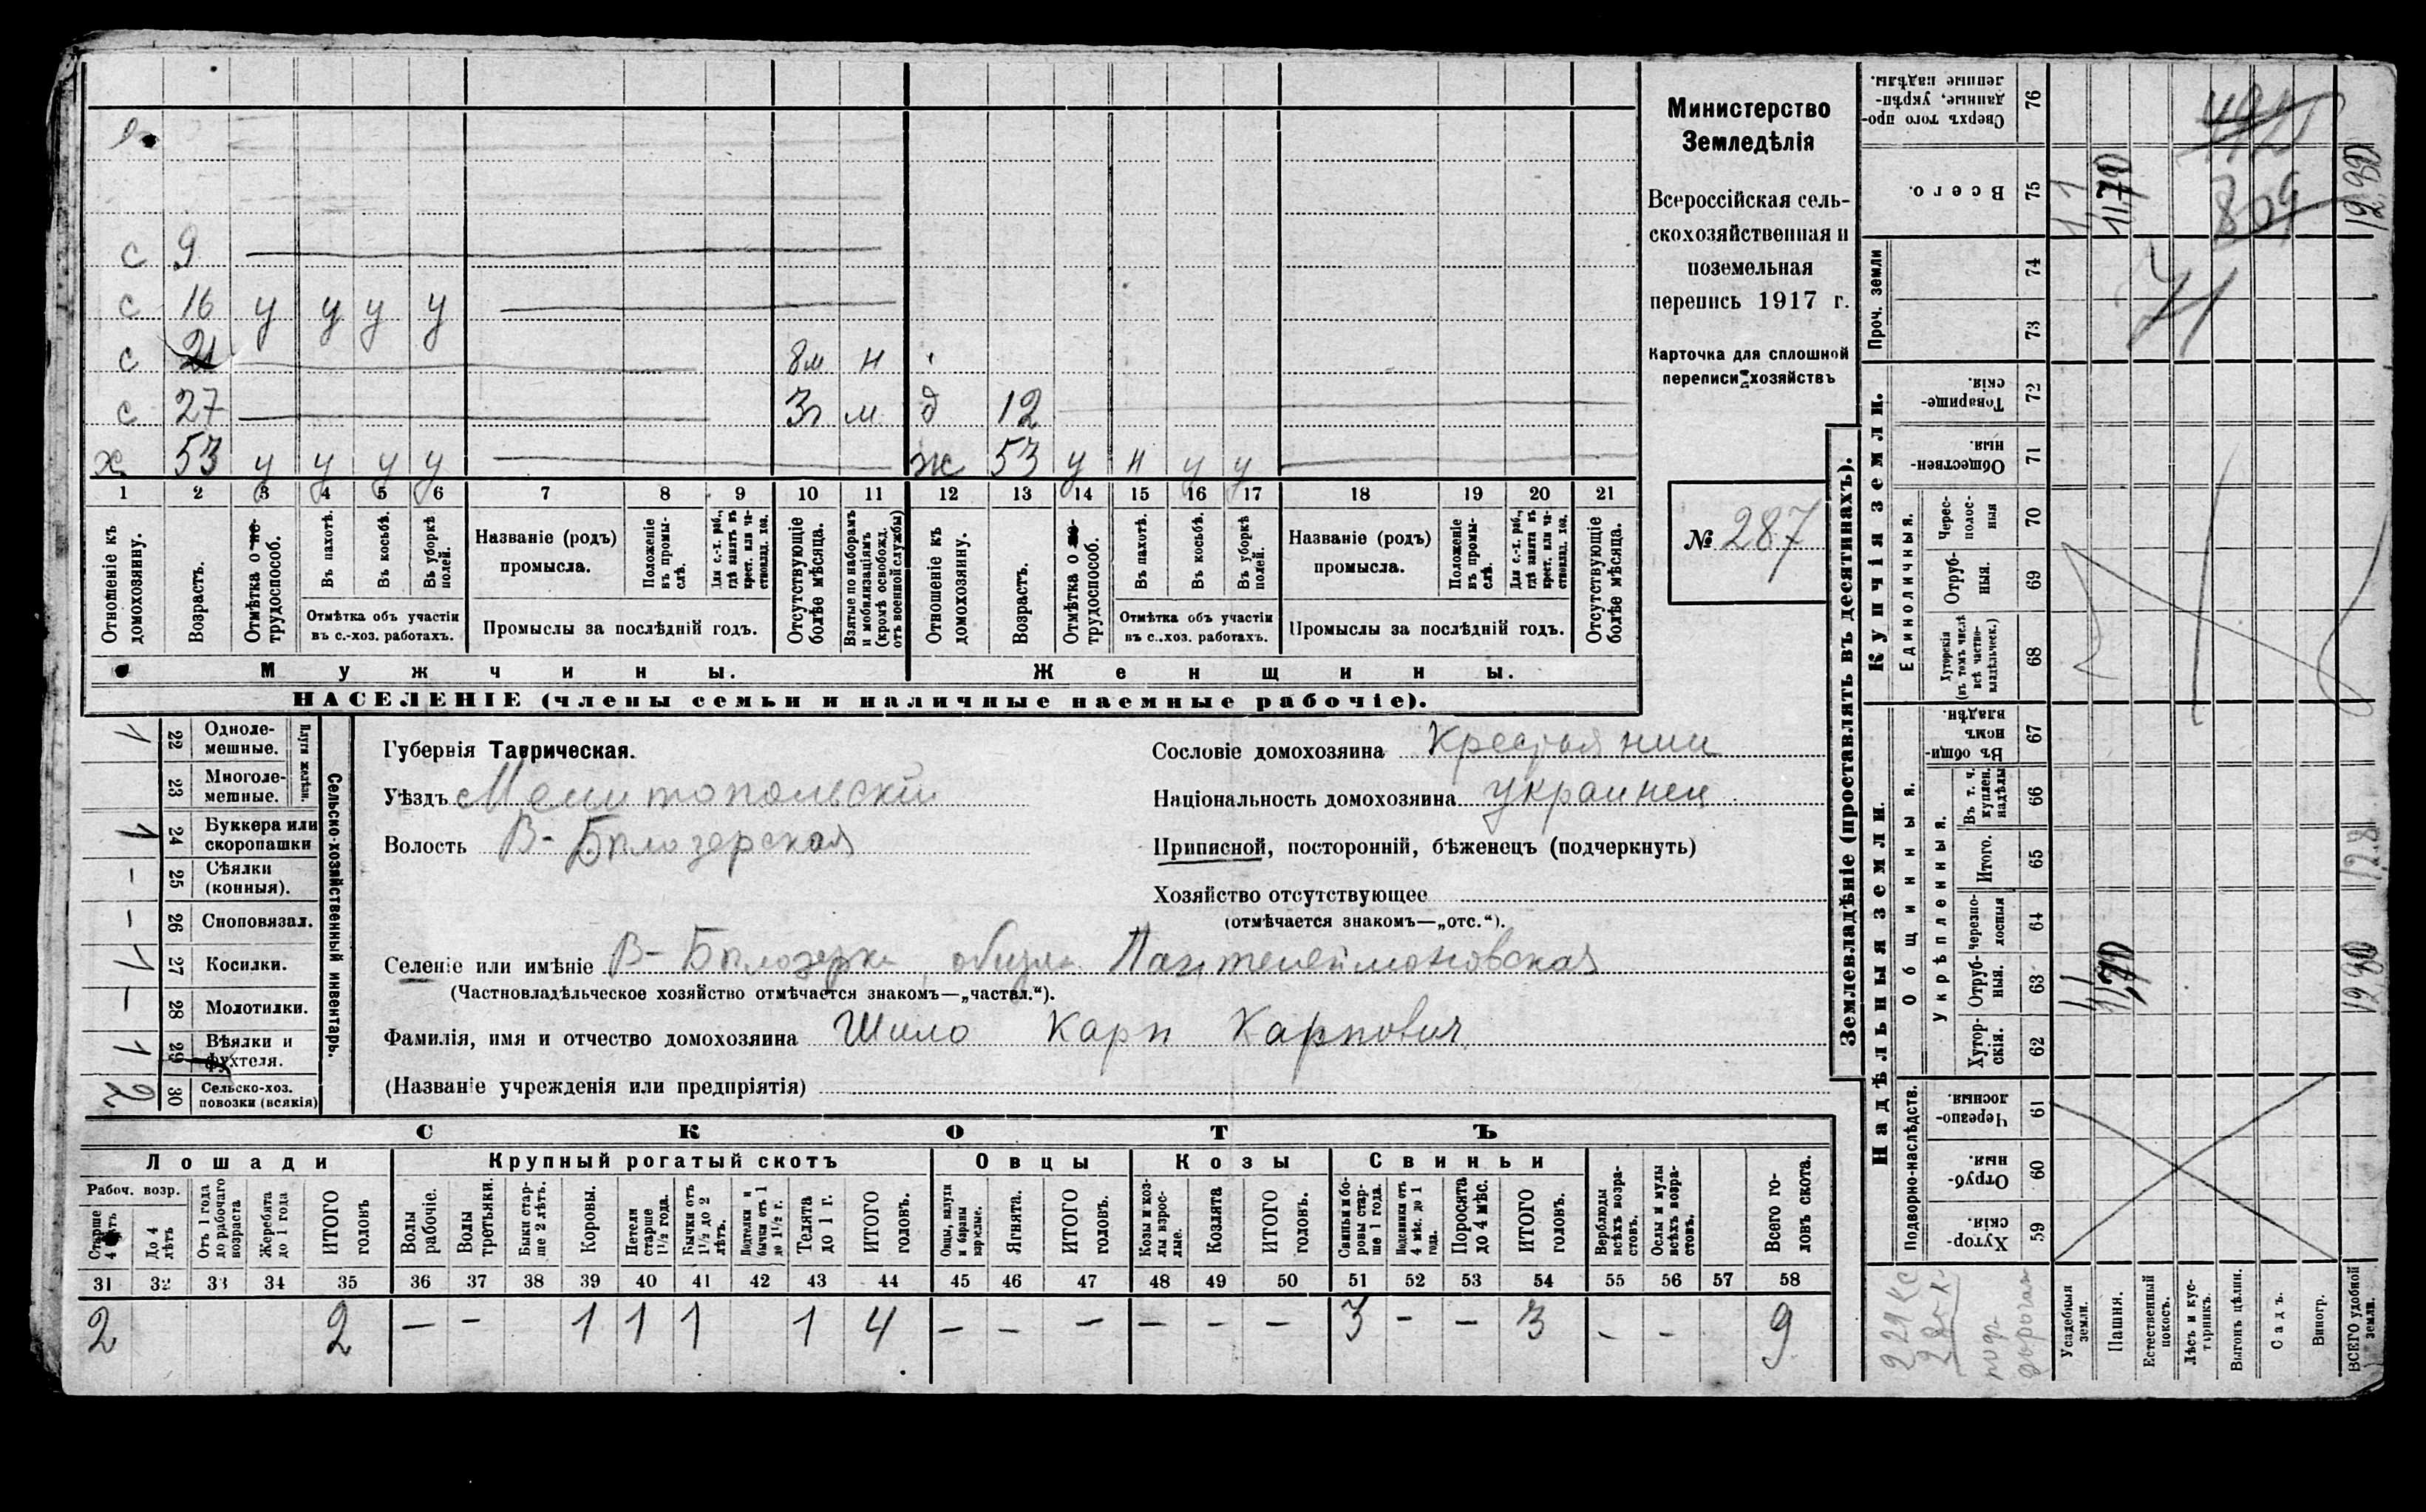 с 9
с 16 у у у у
с 21 8м н
с 27 3г м д 12
х 53 у у у у ж 53 у н у у
1 2 3 4 5 6 7 8 9 10 11 12 13 14 15 16 17 18 19 20 21
Отношеніе къ домохозяину.
Возрастъ.
Отмѣтка о не-трудоспособ.
Въ пахотѣ.
Въ косьбѣ.
Въ уборкѣ полей.
Отмѣтка объ участіи
въ с.-хоз. работахъ.
Названіе (родъ)
промысла.
Положеніе въ промы-слѣ.
Для с.-х. раб., гдѣ занятъ въ крест. или ча-стновлад. хоз.
Промыслы за послѣдній годъ.
Отсутствующіе болѣе мѣсяца.
Взятые по наборамъ и мобилизаціямъ (кромѣ освобожд. отъ военной службы)
Отношеніе къ домохозяину.
Возрастъ.
Отмѣтка о не-трудоспособ.
Въ пахотѣ.
Въ косьбѣ.
Въ уборкѣ полей.
Отмѣтка объ участіи
въ с..хоз. работахъ.
Названіе (родъ)
промысла.
Положеніе въ промы-слѣ.
Для с.-х. раб., гдѣ занята въ крест. или ча-стновлад. хоз.
Промыслы за послѣдній годъ.
Отсутствующіе болѣе мѣсяца.
Мужчины.
Женщины.
НАСЕЛЕНІЕ (члены семьи и наличные наемные рабочіе).
Министерство
Земледѣлія
Всероссійская сель-
скохозяйственная и
поземельная
перепись 1917 г.
Карточка для сплошной
переписи хозяйствъ
№ 287
1 22 Одноле-мешные.
23 Многоле-мешные.
Плуги желѣзн.
1 24 Буккера или скоропашки
– 25 Сѣялки (конныя).
– 26 Сноповязал.
1 27 Косилки.
– 28 Молотилки.
1 29 Вѣялки и фухтеля.
2 30 Сельско-хоз. повозки (всякія)
Сельско-хозяйственный инвентарь.
Губернія Таврическая.
Уѣздъ Мелитопольскій
Волость В-Бѣлозерская
Сословіе домохозяина Крестьянин
Національность домохозяина украинец
Приписной, посторонній, бѣженецъ (подчеркнуть)
Хозяйство отсутствующее
(отмѣчается знакомъ—„отс.“).
Селеніе или имѣніе В-Бѣлозерка, общ. Пантелеймоновская
(Частновладѣльческое хозяйство отмѣчается знакомъ—„частвл.“).
Фамилія, имя и отчество домохозяина Шило Карп Карпович
(Названіе учрежденія или предпріятія)
СКОТЪ
Лошади
Крупный рогатый скотъ
Овцы
Козы
Свиньи
Рабоч. возр.
Старше 4 лѣтъ
До 4 лѣтъ
Отъ 1 года до рабочаго возраста
Жеребята до 1 года
ИТОГО головъ
Волы рабочіе.
Волы третьяки.
Быки стар-ше 2 лѣтъ.
Коровы.
Нетели старше 1½ года.
Бычки отъ 1½ до 2 лѣтъ.
Подтелки и бычки отъ 1 до 1½ г.
Телята до 1 г.
ИТОГО головъ.
Овцы, валухи и бараны взрослые.
Ягнята.
ИТОГО головъ.
Козы и коз-лы взрос-лые.
Козлята
ИТОГО головъ.
Свиньи и бо-ровы стар-ше 1 года.
Подсвинки отъ 4 мѣс. до 1 года.
Поросята до 4 мѣс.
ИТОГО головъ.
Верблюды всѣхъ возра-стовъ.
Ослы и мулы всѣхъ возра-стовъ.
Всего го-ловъ скота.
31 32 33 34 35 36 37 38 39 40 41 42 43 44 45 46 47 48 49 50 51 52 53 54 55 56 57 58
2 2 – – 1 1 1 1 4 – – – – – – 3 – – 3 – – 9
Землевладѣніе (проставлять въ десятинахъ).
Надѣльныя земли.
Купчія земли.
Проч. земли
Подворно-наслѣдств.
Общинныя.
Укрѣпленныя.
Единоличныя.
Сверхъ того про-данные, укрѣп-ленные надѣлы. 76
Всего. 75
74
73
Товарище-скія. 72
Обществен-ныя. 71
Черес-полос-ныя 70
Отруб-ныя. 69
Хуторскія (въ томъ числѣ всѣ частно-владѣльческ.) 68
Въ общи-номъ владѣн. 67
Въ т. ч. куплен. надѣлы 66
Итого. 65
Черезпо-лосныя 64
Отруб-ныя. 63
Хутор-скія. 62
Черезпо-лосныя. 61
Отруб-ныя. 60
Хутор-скія. 59
Усадебныя земли.
Пашня.
Естественный покосъ.
Лѣсъ и кус-тарникъ.
Выгонъ цѣлин.
Садъ.
Виногр.
ВСЕГО удобной земли.
1,1
11,70
12,80
1,1
11,70
12,80
128